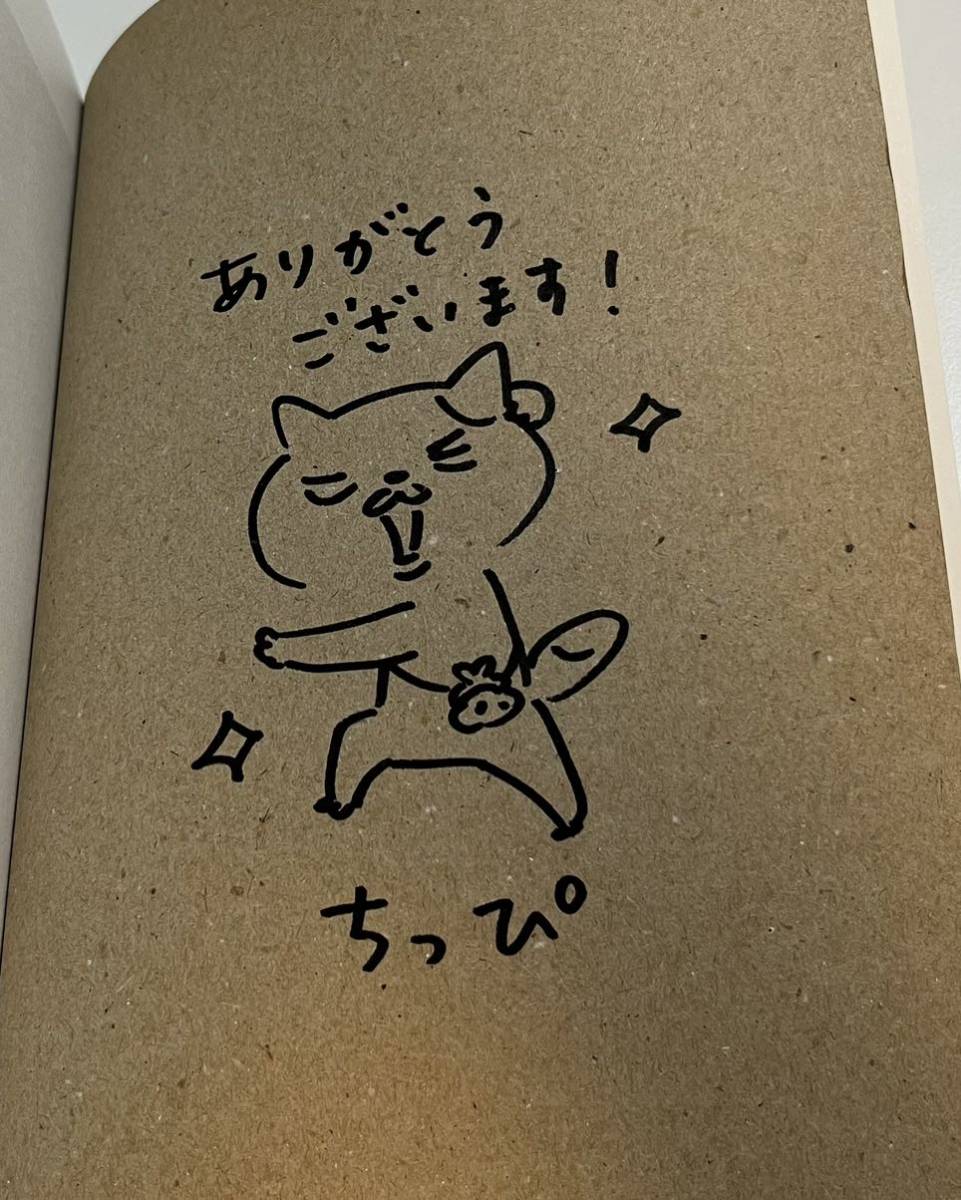 ありがとう
ございます!
ちっぴ